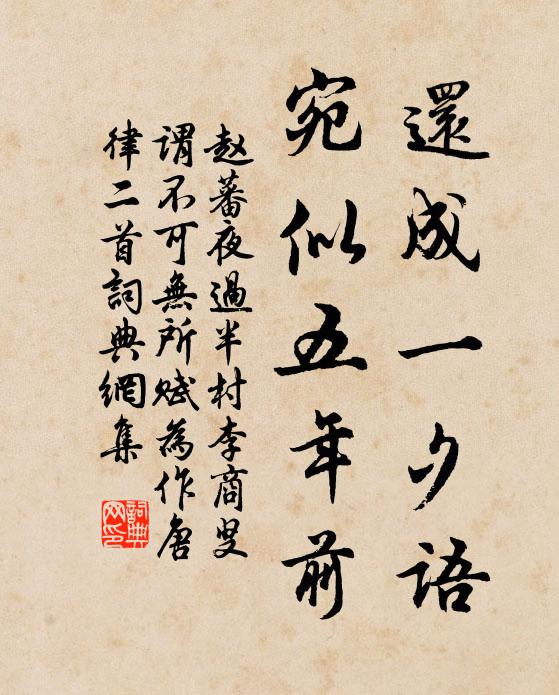 還成一夕語
宛似五年前
赵蕃夜過半村李商叟
謂不可無所赋為作唐
律二首詞典網集
詞典
网印